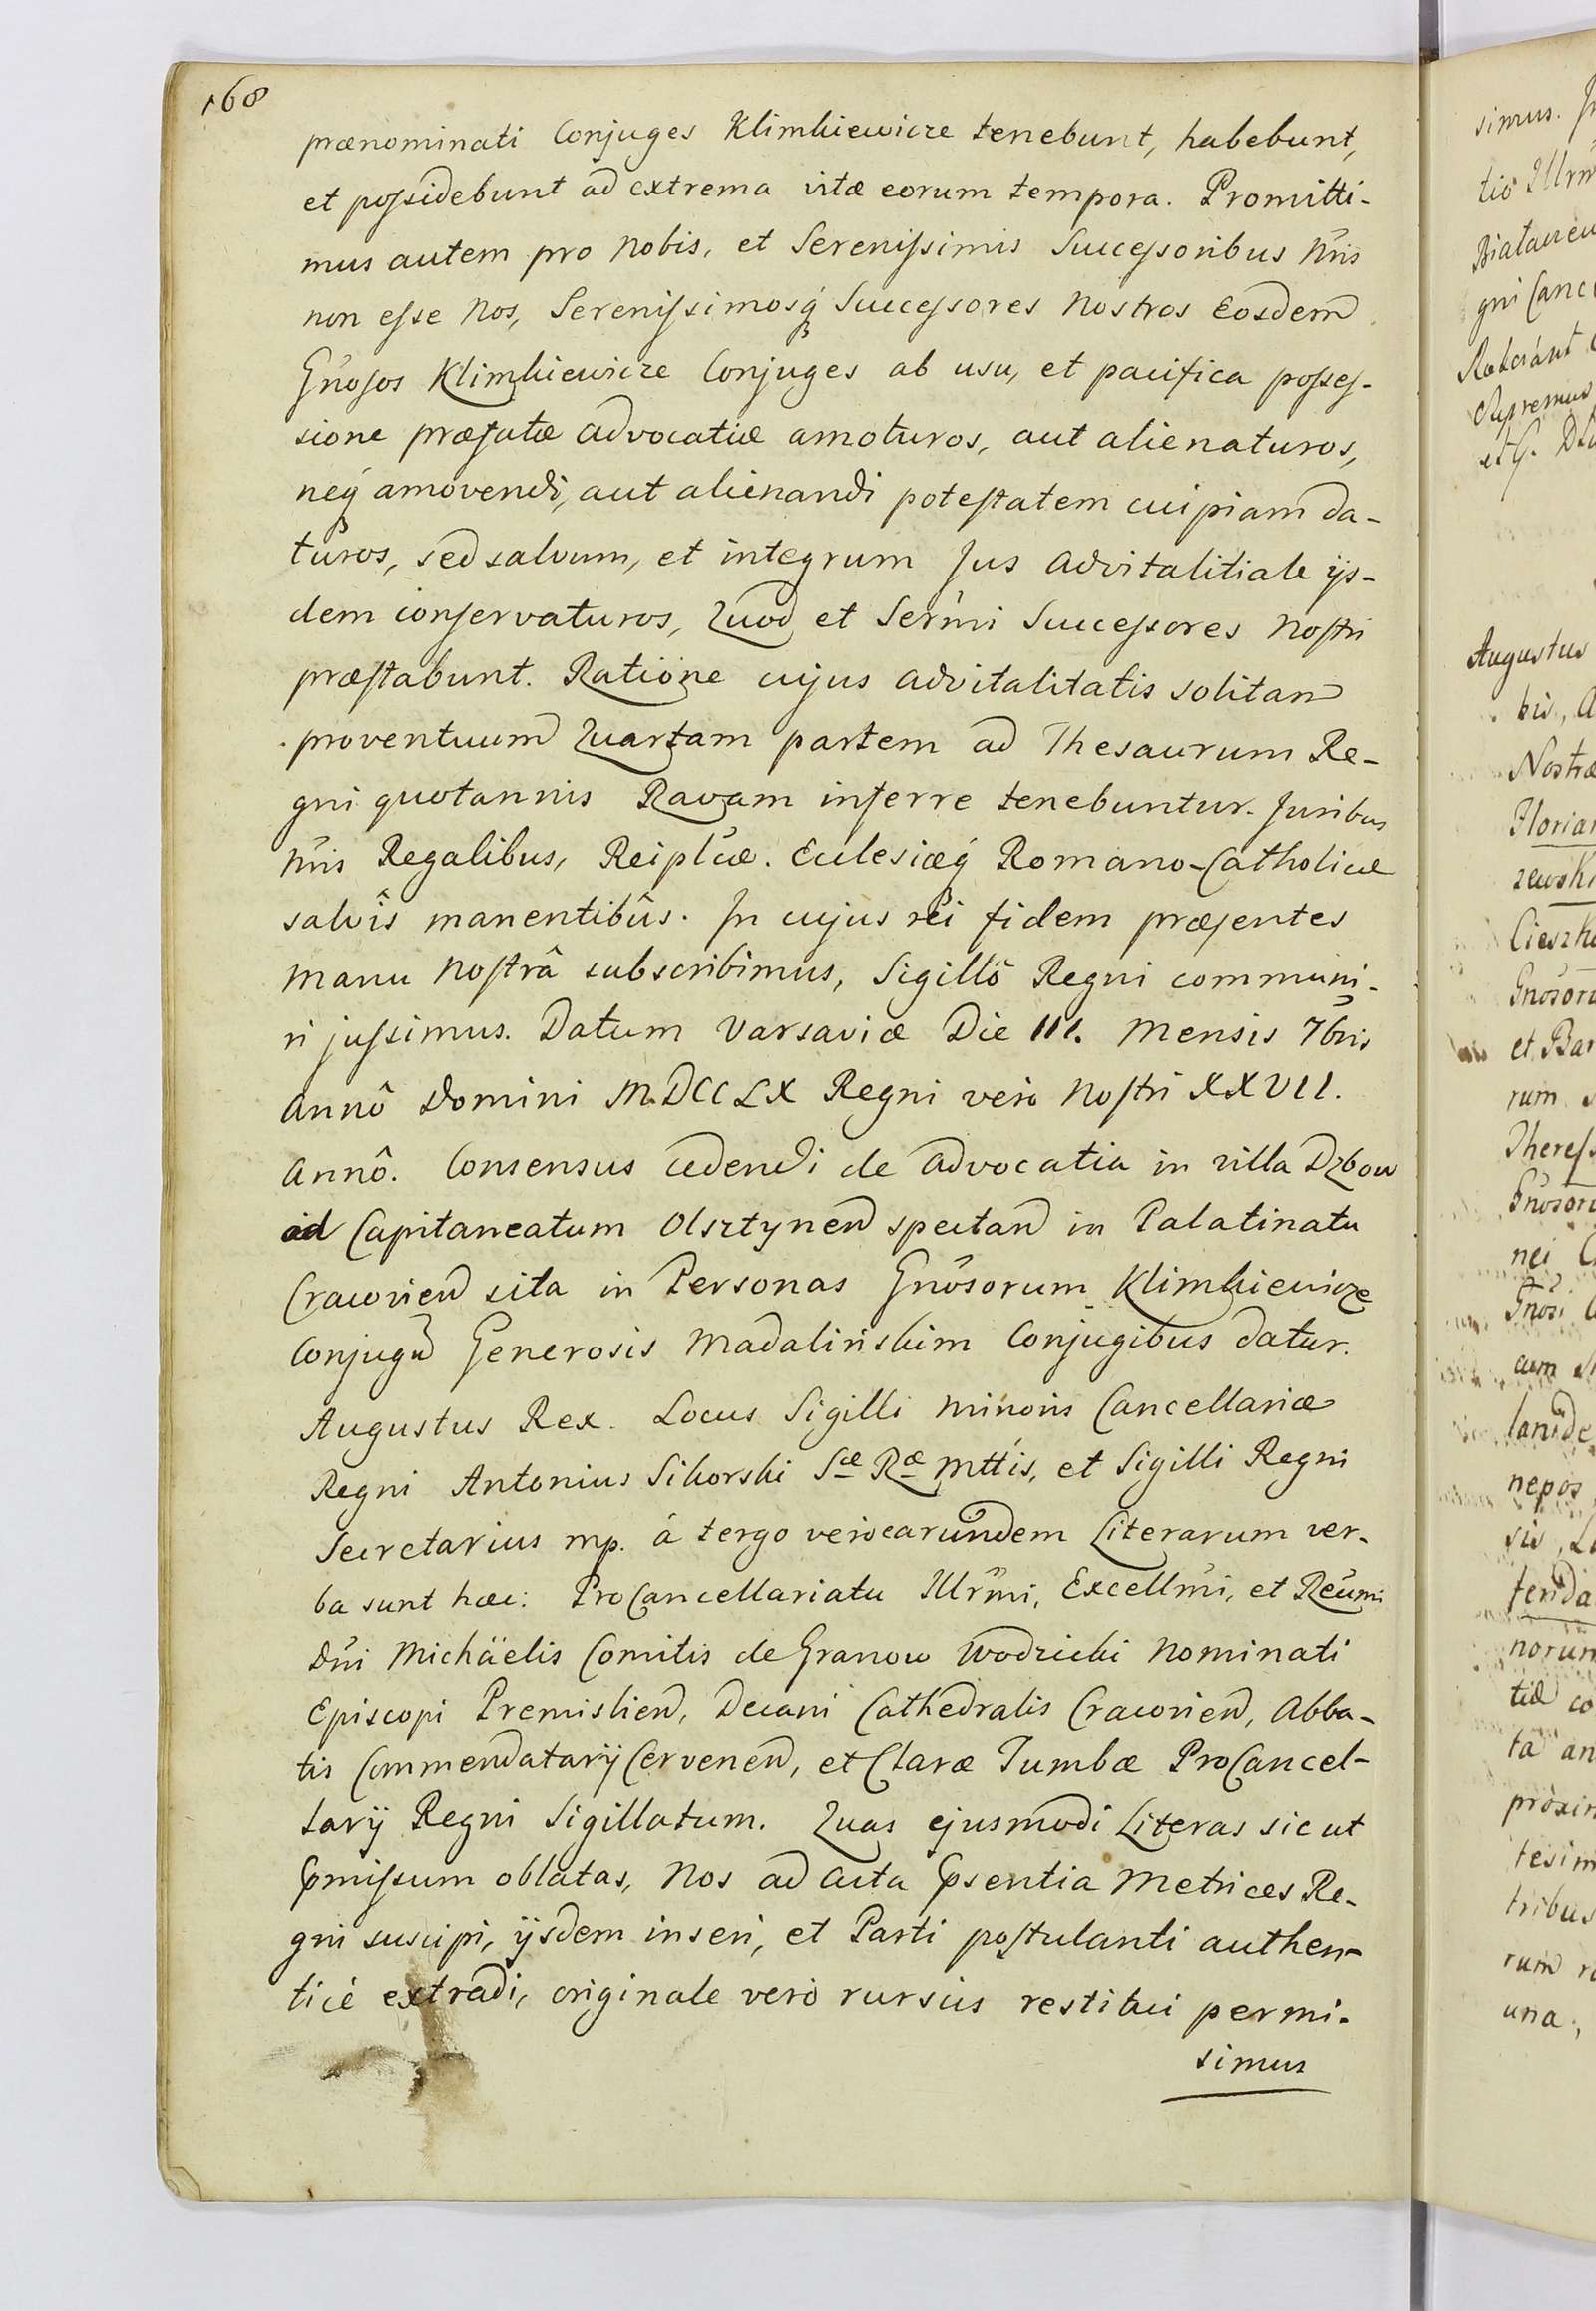 168
prænominati Conjuges Klimkiewicze tenebunt, habebunt,
et poſsidebunt ad extrema vitæ eorum tempora. Promitti-
mus autem pro Nobis, et Sereniſsimis Succeſsoribus Nris
non eſse Nos, Sereniſsimosq́ Succeſsores Nostros Eosdem
Gnoſos Klimkiewicze Conjuges ab usu, et pacifica poſseſ-
sione præfatæ advocatiæ amoturos, aut alienaturos,
neq́ amovendi, aut alienandi poteſtatem cuipiam da-
turos, sed salvum, et integrum Jus advitalitiale ijs-
dem conſervaturos, Quod et Sermi Succeſsores Noſtri
præſtabunt. Ratione cujus advitalitatis solitam
proventuum Quartam partem ad Thesaurum Re-
gni quotannis Ravam inferre tenebuntur. Juribus
Nris Regalibus, Reiplcæ. Ecclesiæq́ Romano-Catholicæ
salvis manentibûs. In cujus rei fidem præſentes
Manu Noſtrâ subscribimus, Sigillô Regni communi-
ri juſsimus. Datum Varsaviæ Die III. Mensis 7bris
Annô Domini M.DCCLX Regni vero Noſtri XXVII.
Annô. Consensus cedendi de advocatia in villa Dzbow
ad Capitaneatum Olsztynen spectan in Palatinatu
Cracovien sita in Personas Gnôsorum Klimkiewicze
Conjugũ Generosis Madalińskim Conjugibus datur.
Augustus Rex. Locus Sigilli Minoris Cancellariæ
Regni Antonius Sikorski Sæ Ræ Mttis, et Sigilli Regni
Secretarius mp. á tergo vero earundem Literarum ver-
ba sunt hæc: ProCancellariatu Illrmi, Excellmi, et Reumi
Dni Michäelis Comitis de Granow Wodzicki Nominati
Episcopi Premislien, Decani Cathedralis Cracovien, Abba-
tis Commendatarij Cervenen, et Claræ Tumbæ ProCancel-
larij Regni Sigillatum. Quas ejusmodi Literas sic ut
pmiſsum oblatas, Nos ad acta psentia Metrices Re-
gni suscipi, ijsdem inseri, et Parti poſtulanti authen-
ticè extradi, originale verò rursus restitui permi-
simus